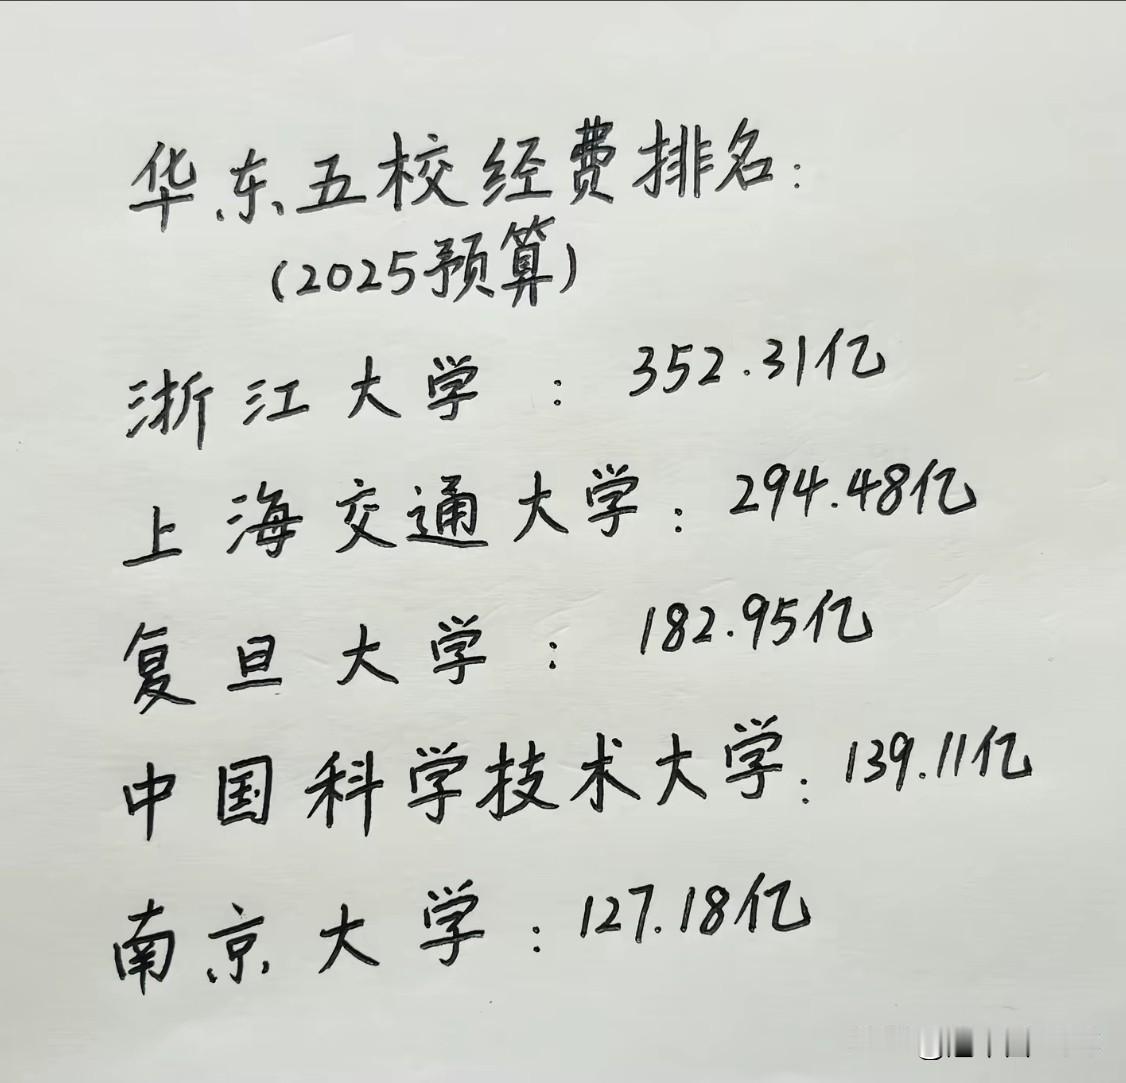 华东五校经费排名:
(2025预算)
浙江大学 : 352.31亿
上海交通大学: 294.48亿
复旦大学 : 182.95亿
中国科学技术大学: 139.11亿
南京大学 : 127.18亿